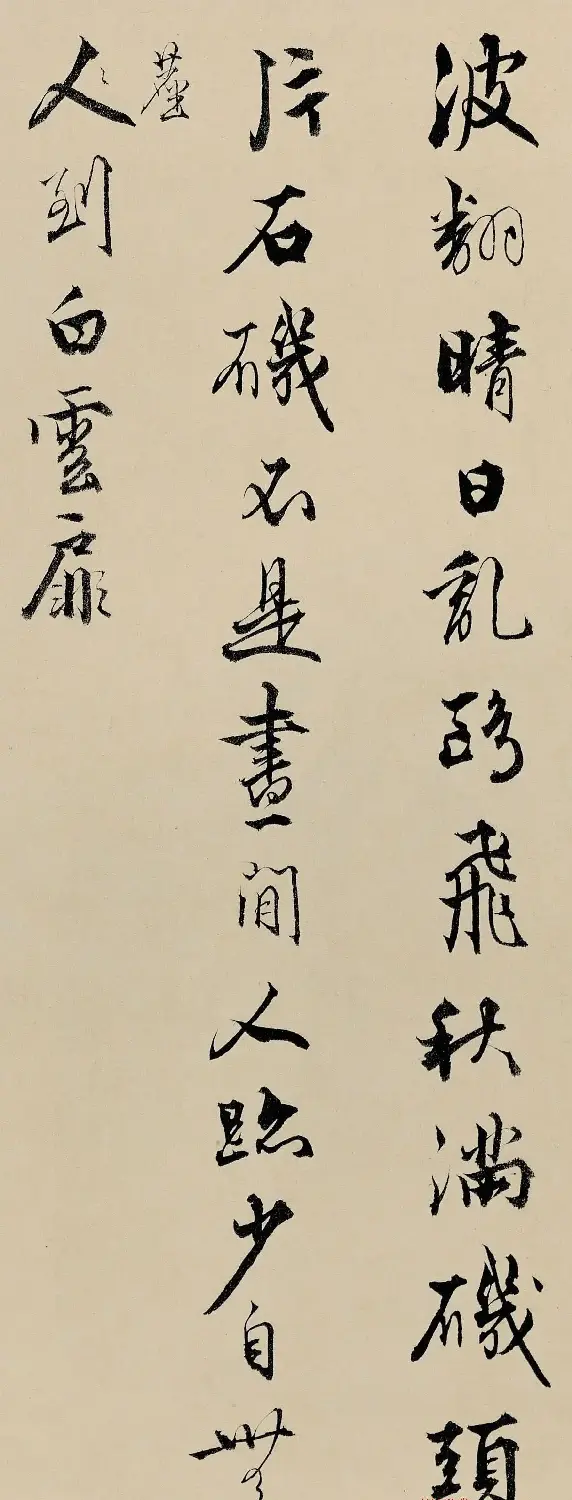 波翻晴日亂鷗飛秋滿磯頭
片石磯不是晝間人跡少自無
塵
人到白雲扉